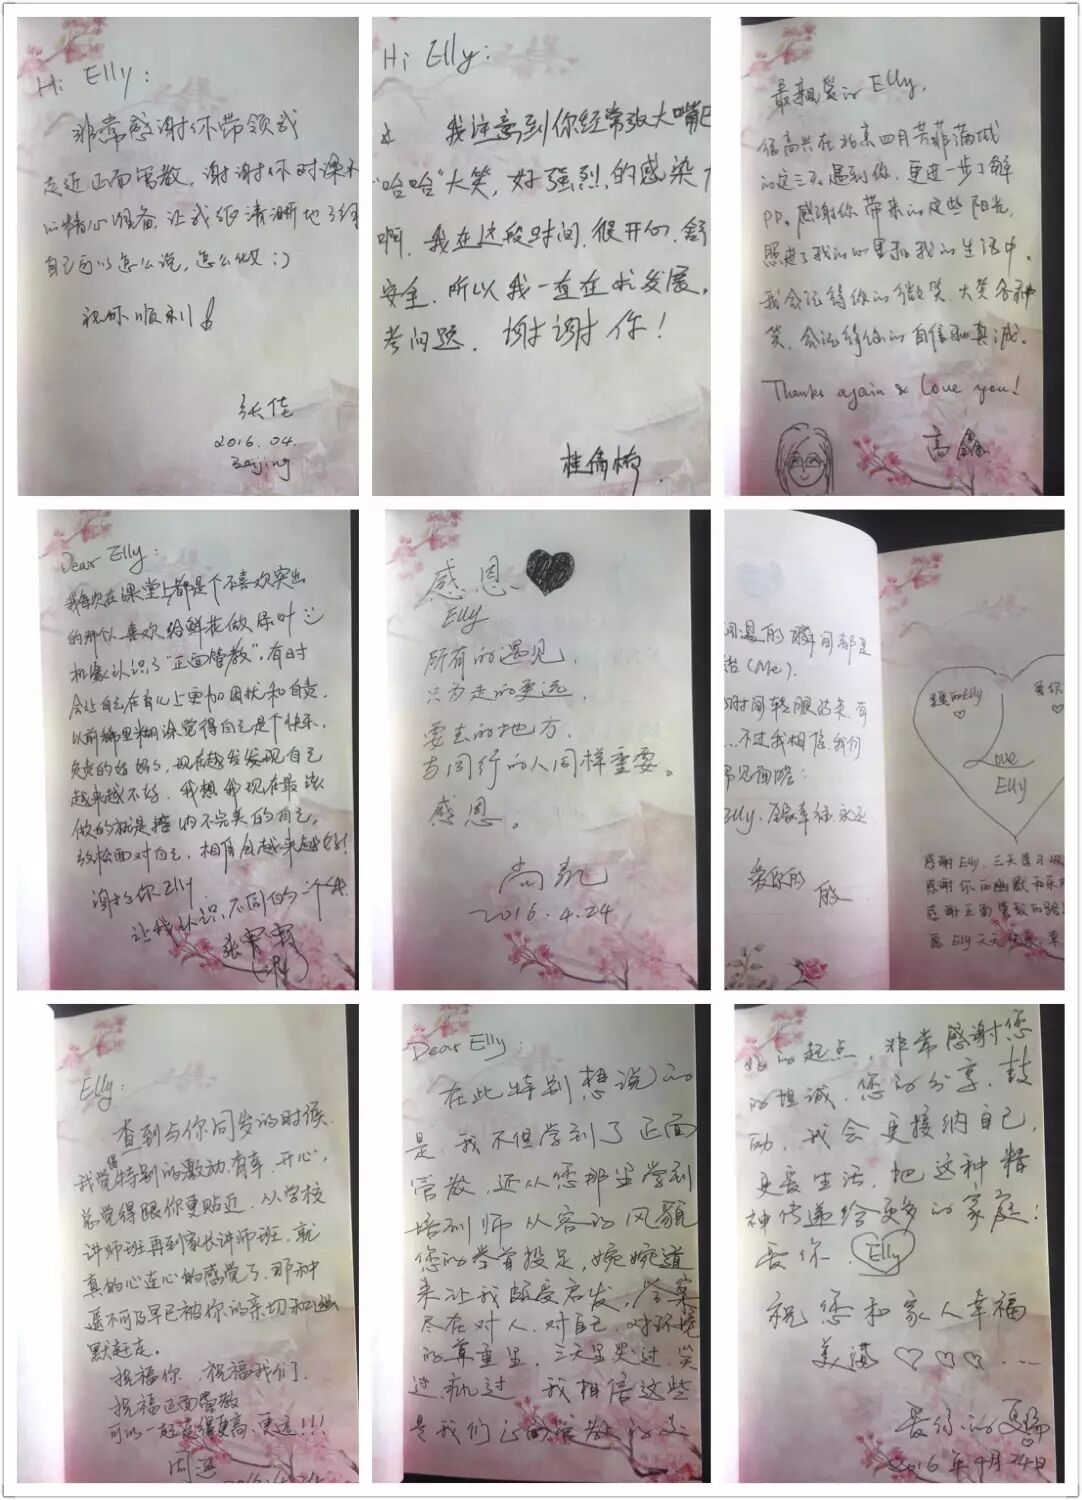 Hi Elly:
非常感谢你带领我
走近正面管教,谢谢你对课程
的精心准备,让我很清晰地了解
自己可以怎么说,怎么做:)
祝你顺利
张佳
2016.04.
Beijing
Hi Elly:
我注意到你经常张大嘴巴
"哈哈"大笑,好强烈的感染力
啊,我在这段时间,很开心,舒
安全,所以我一直在发展,
考问题,谢谢你!
最亲爱的Elly,
很高兴在北京四月芳菲满城
的这三天遇到你,更进一步了解
PP。感谢你带来的这些阳光,
照进了我的心里和我的生活中。
我会记得你的微笑、大笑各种
笑,会记得你的自信和真诚。
Thanks again & Love you!
高鑫
Dear Elly:
我每次在课堂上都是个不喜欢突出
的那个人,喜欢给鲜花做绿叶
机缘认识了"正面管教",有时
会让自己在育儿上更加困扰和自责,
以前稀里糊涂觉得自己是个快乐,
负责的好妈妈,现在越发发现自己
越来越不好,我想我现在最该
做的就是接纳不完美的自己,
放松面对自己,相信会越来越好!
谢谢你Elly
让我认识,不同的一个
感恩
Elly
所有的遇见,
只为走的更远,
要去的地方,
与同行的人同样重要。
感恩。
尚凯
2016.4.24
的瞬间都是
(Me).
时间轻
...不过我相信我们
见面
Elly,
爱你的
亲爱的Elly
爱你
Love
Elly
感谢Elly,三天学习
感谢你的幽默和
感谢正面管教的路
愿Elly天天快乐,幸
Elly:
查到与你同岁的时候,
我觉得特别的激动,有幸,开心,
总觉得跟你更贴近,从学校
讲师班再到家长讲师班,就
真的心连心的感觉了,那种
遥不可及早已被你的亲切和幽
默赶走。
祝福你,祝福我们,
祝福正面管教
可以一起走得更高、更远!!!
Dear Elly:
在此特别想说的
是,我不但学到了正面
管教,还从您那里学到
培训师从容的风貌
您的举首投足,婉婉道
来让我颇受启发,答案
尽在对人、对自己、对环境
的尊重里,三天里哭过,笑
过疯过,我相信这些
是我们正面管教的
好的起点,非常感谢您
的坦诚、您的分享、鼓
励,我会更接纳自己,
更爱生活,把这种精
神传递给更多的家庭!
爱你 Elly
祝您和家人幸福
美满
爱你的
2016年4月24日